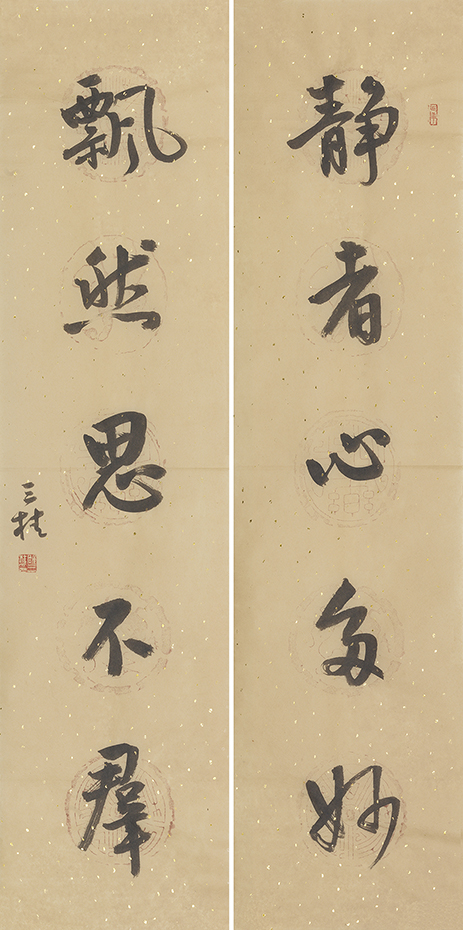 静者心多妙
飘然思不羣
三桂